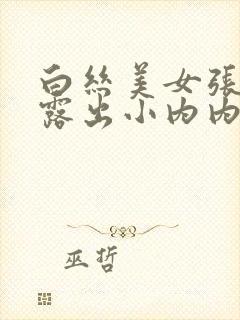 白丝美女張
露出小内内
巫哲